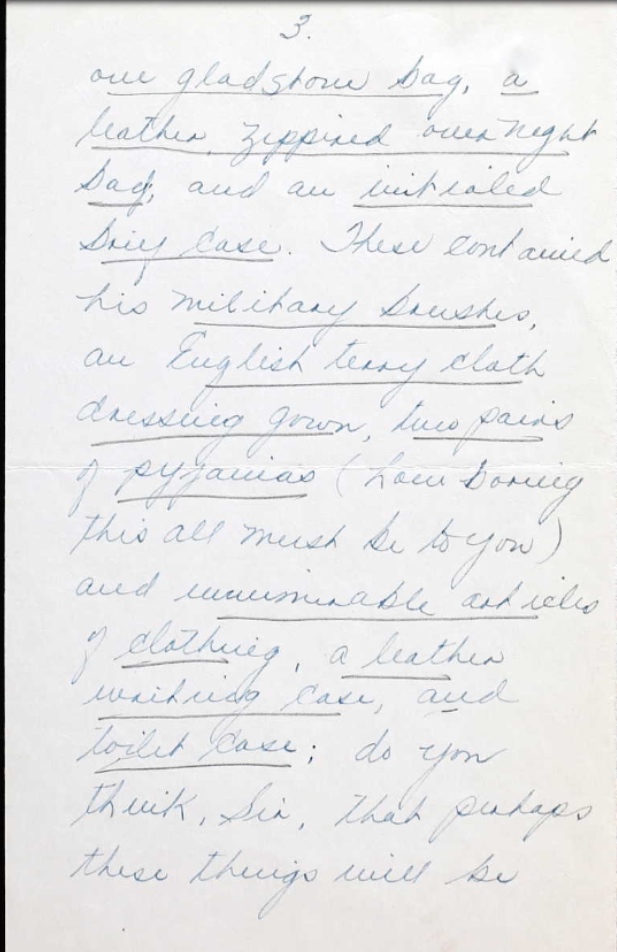 3.
one gladstone bag, a
leather, zippired over night
bag, and an initialed
brief case. These contained
his military brushes,
an English terry cloth
dressing gown, two pairs
of pyjamas (how boring
this all must be to you)
and innumerable articles
of clothing, a leather
writing case, and
toilet case; do you
think, Sir, that perhaps
these things will be